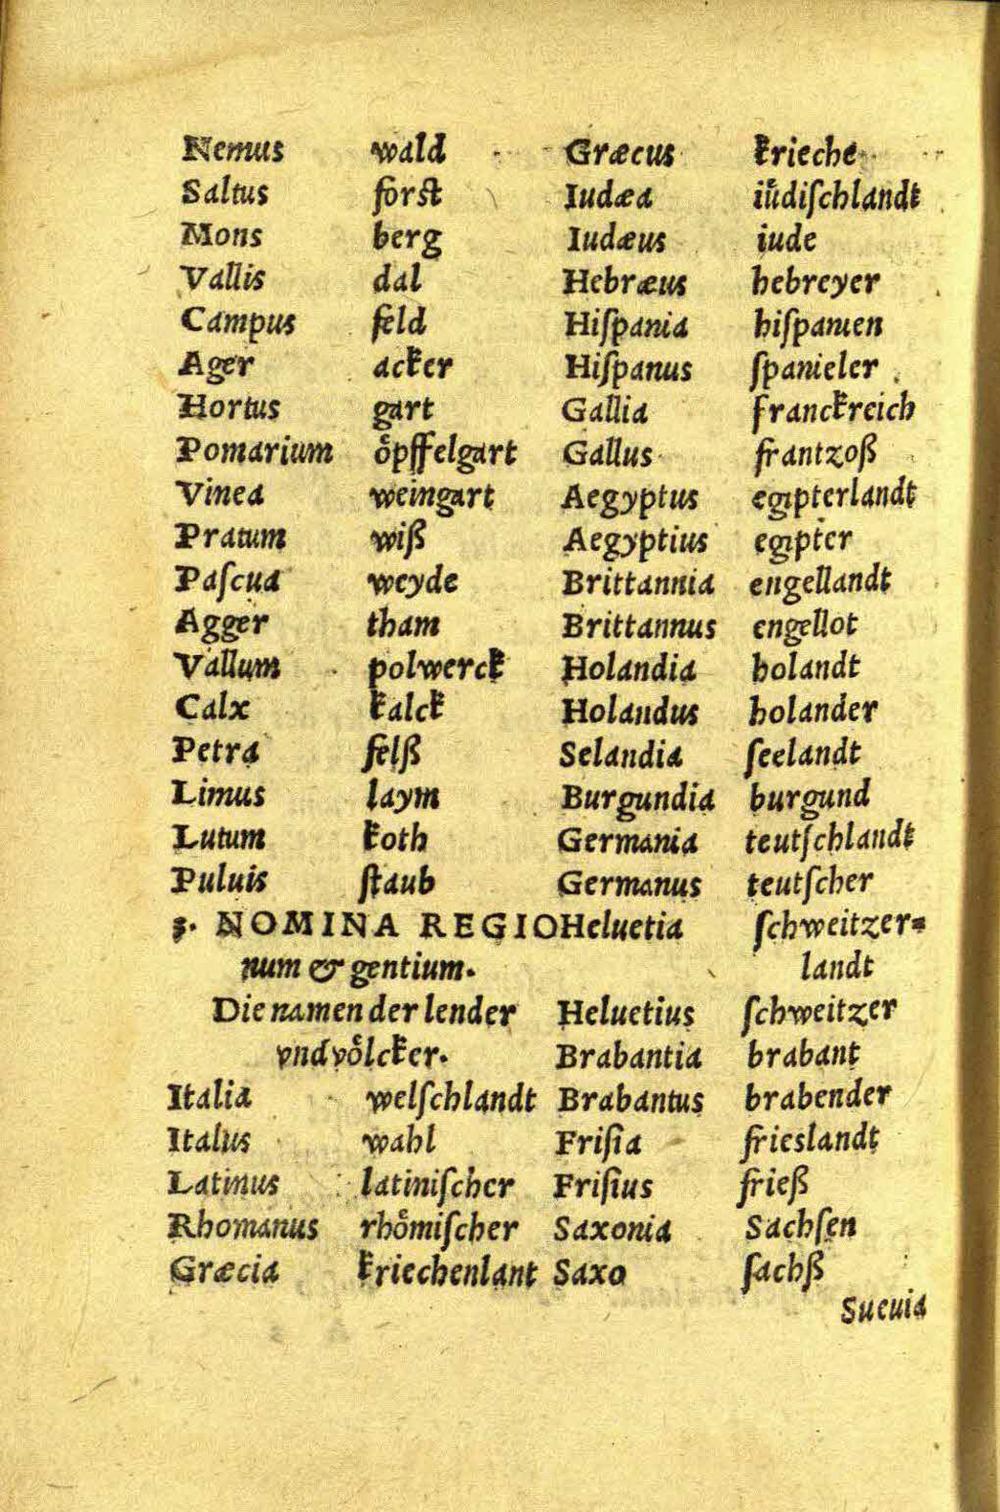 Nemus wald
Saltus forst
Mons berg
Vallis dal
Campus feld
Ager acker
Hortus gart
Pomarium oͤpffelgart
Vinea weingart
Pratum wiß
Paſcua weyde
Agger tham
Vallum polwerck
Calx kalck
Petra felß
Limus laym
Lutum koth
Puluis ſtaub
3. NOMINA REGIO
num & gentium.
Die namen der lender
vnd voͤlcker.
Italia welſchlandt
Italus wahl
Latinus latiniſcher
Rhomanus rhoͤmiſcher
Græcia kriechenlant
Græcus krieche
Iudæa iuͤdiſchlandt
Iudæus iude
Hebræus hebreyer
Hiſpania hiſpanien
Hiſpanus ſpanieler
Gallia franckreich
Gallus frantzoß
Aegyptus egipterlandt
Aegyptius egipter
Brittannia engellandt
Brittannus engellot
Holandia holandt
Holandus holander
Selandia ſeelandt
Burgundia burgund
Germania teutſchlandt
Germanus teutſcher
Heluetia ſchweitzer⸗
landt
Heluetius ſchweitzer
Brabantia brabant
Brabantus brabender
Friſia frieslandt
Friſius frieß
Saxonia Sachſen
Saxo ſachß
Sueuia